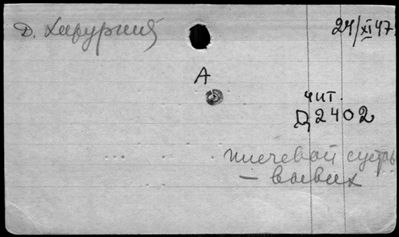 Д. Хирургия 24/XI 47
А
чит.
Д 2402
плечевой сустав
— вывих